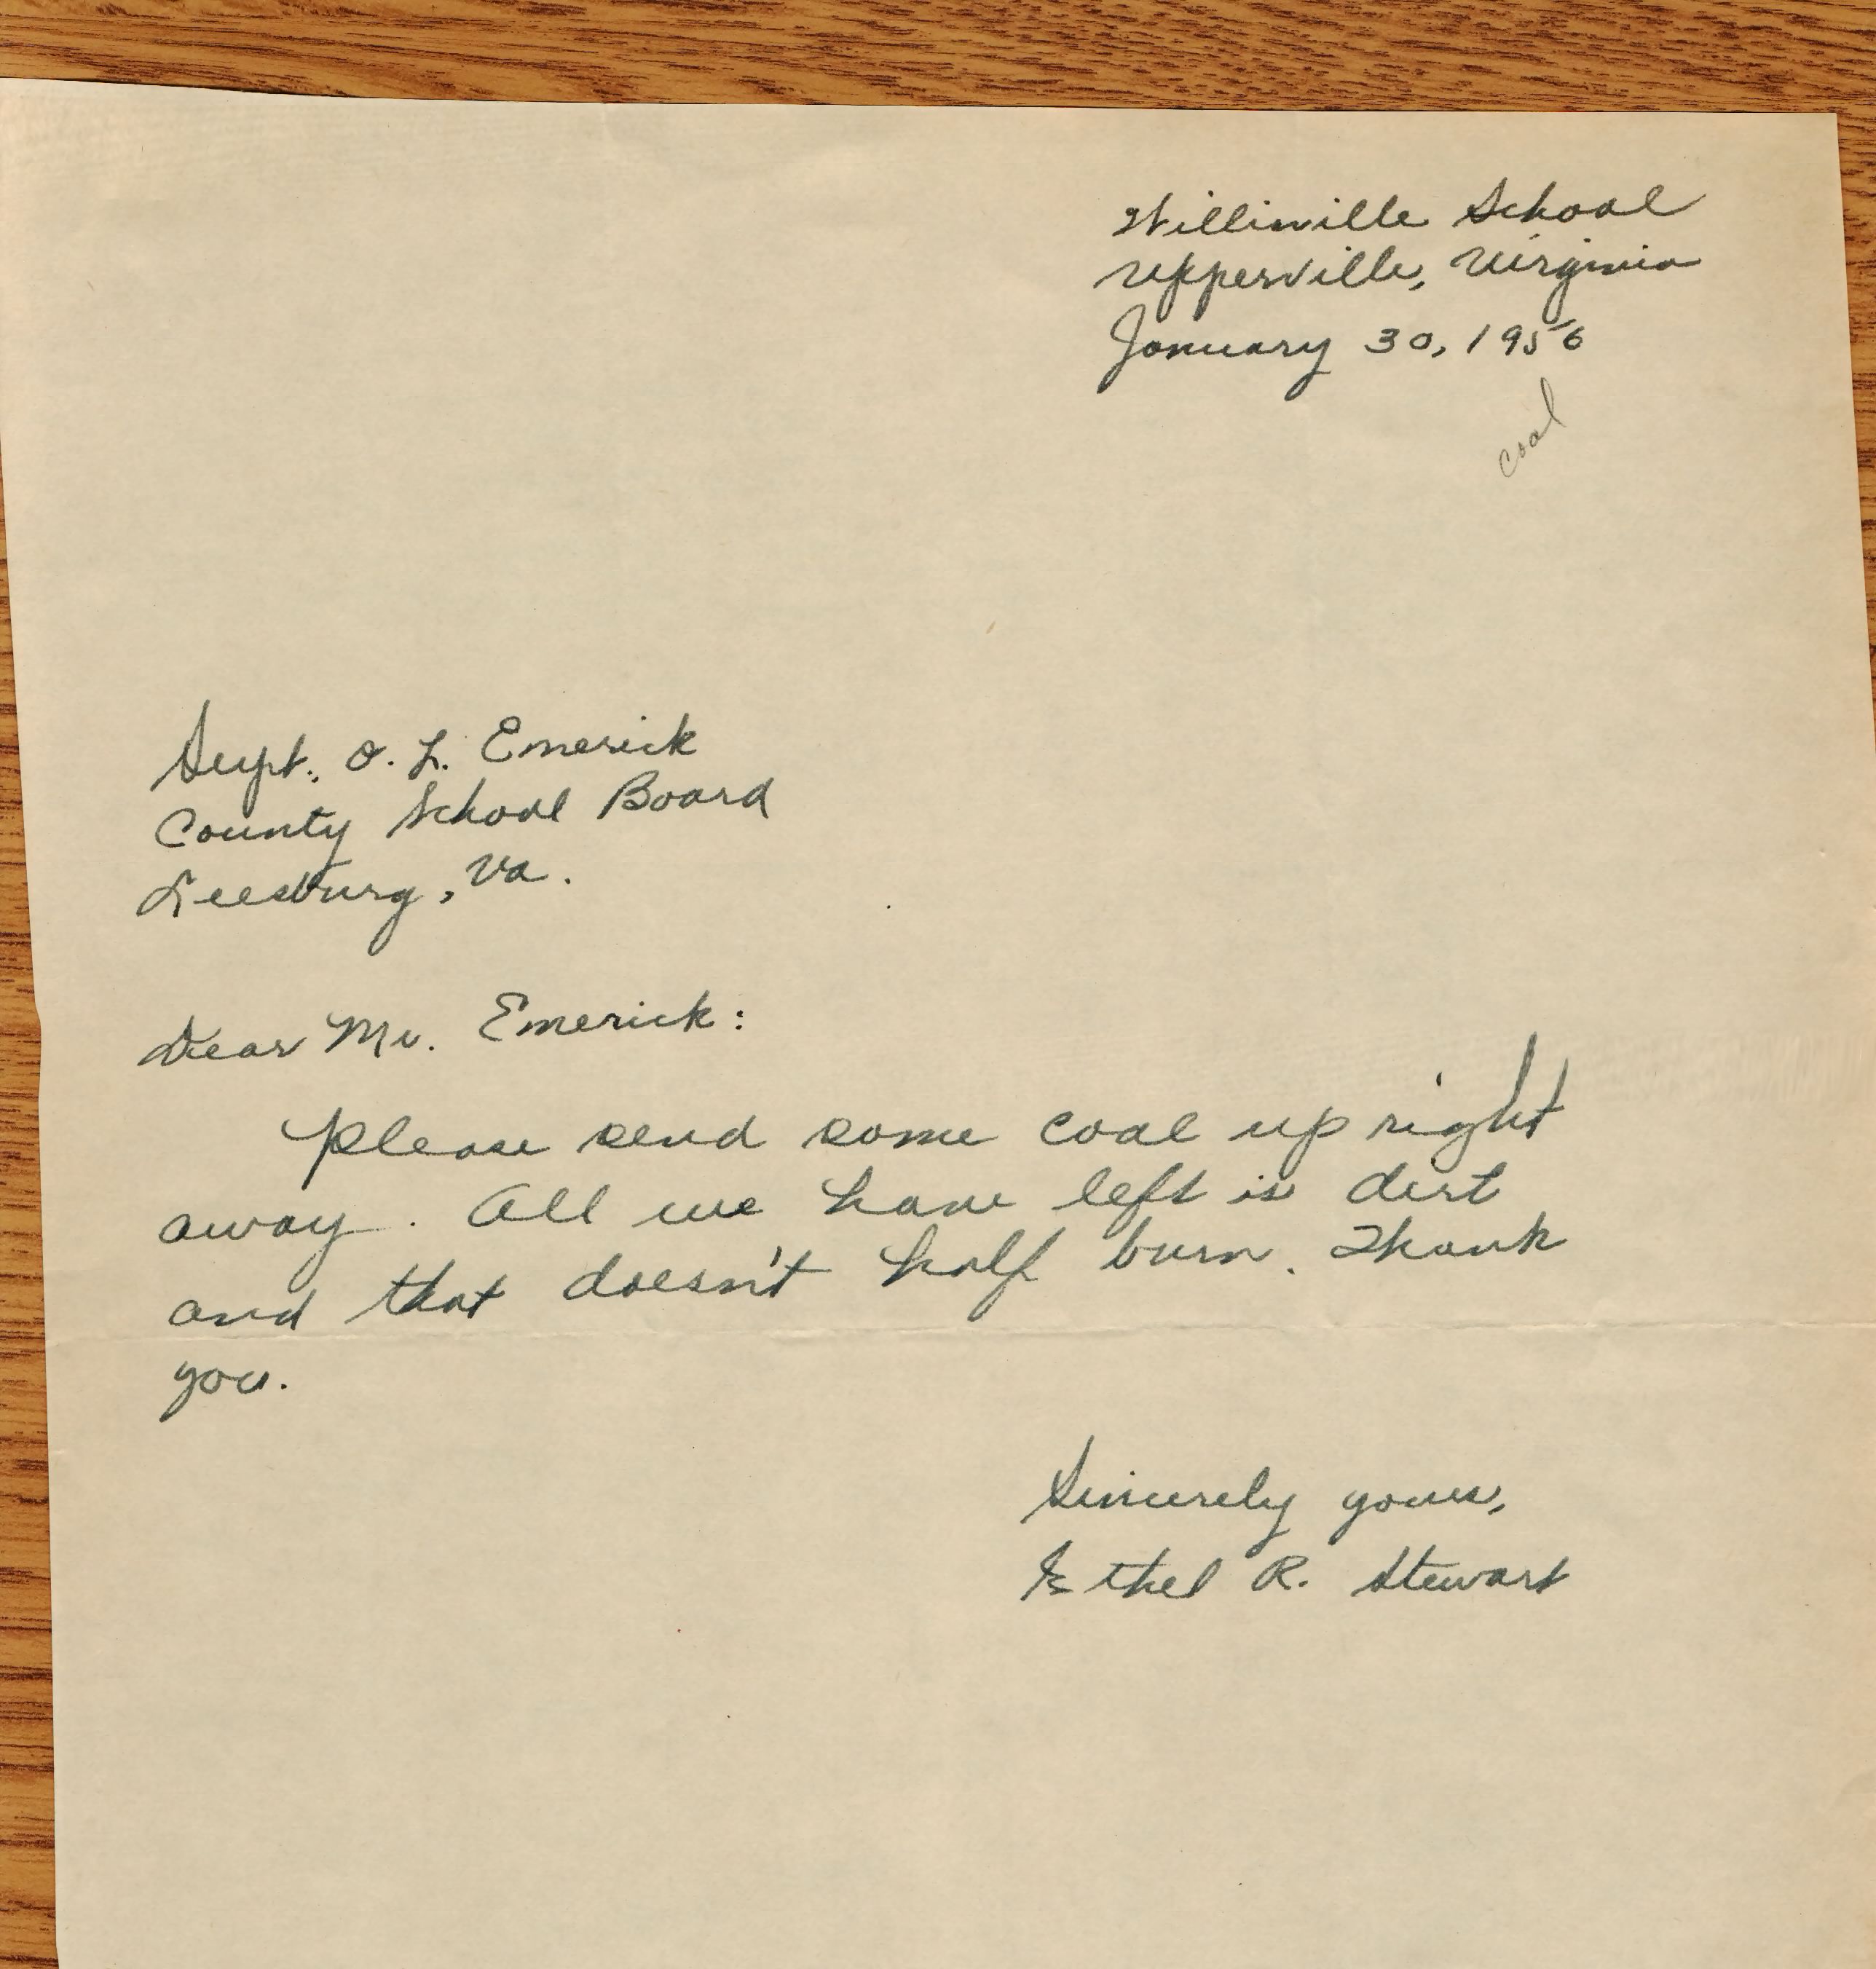 Willinville School
Upperville, Virginia
January 30, 1956
coal
Supt. O. L. Emerick
County School Board
Leesburg, Va.
Dear Mr. Emerick:
Please send some coal up right
away. All we have left is dirt
and that doesn't half burn. Thank
you.
Sincerely yours,
Ethel R. Stewart